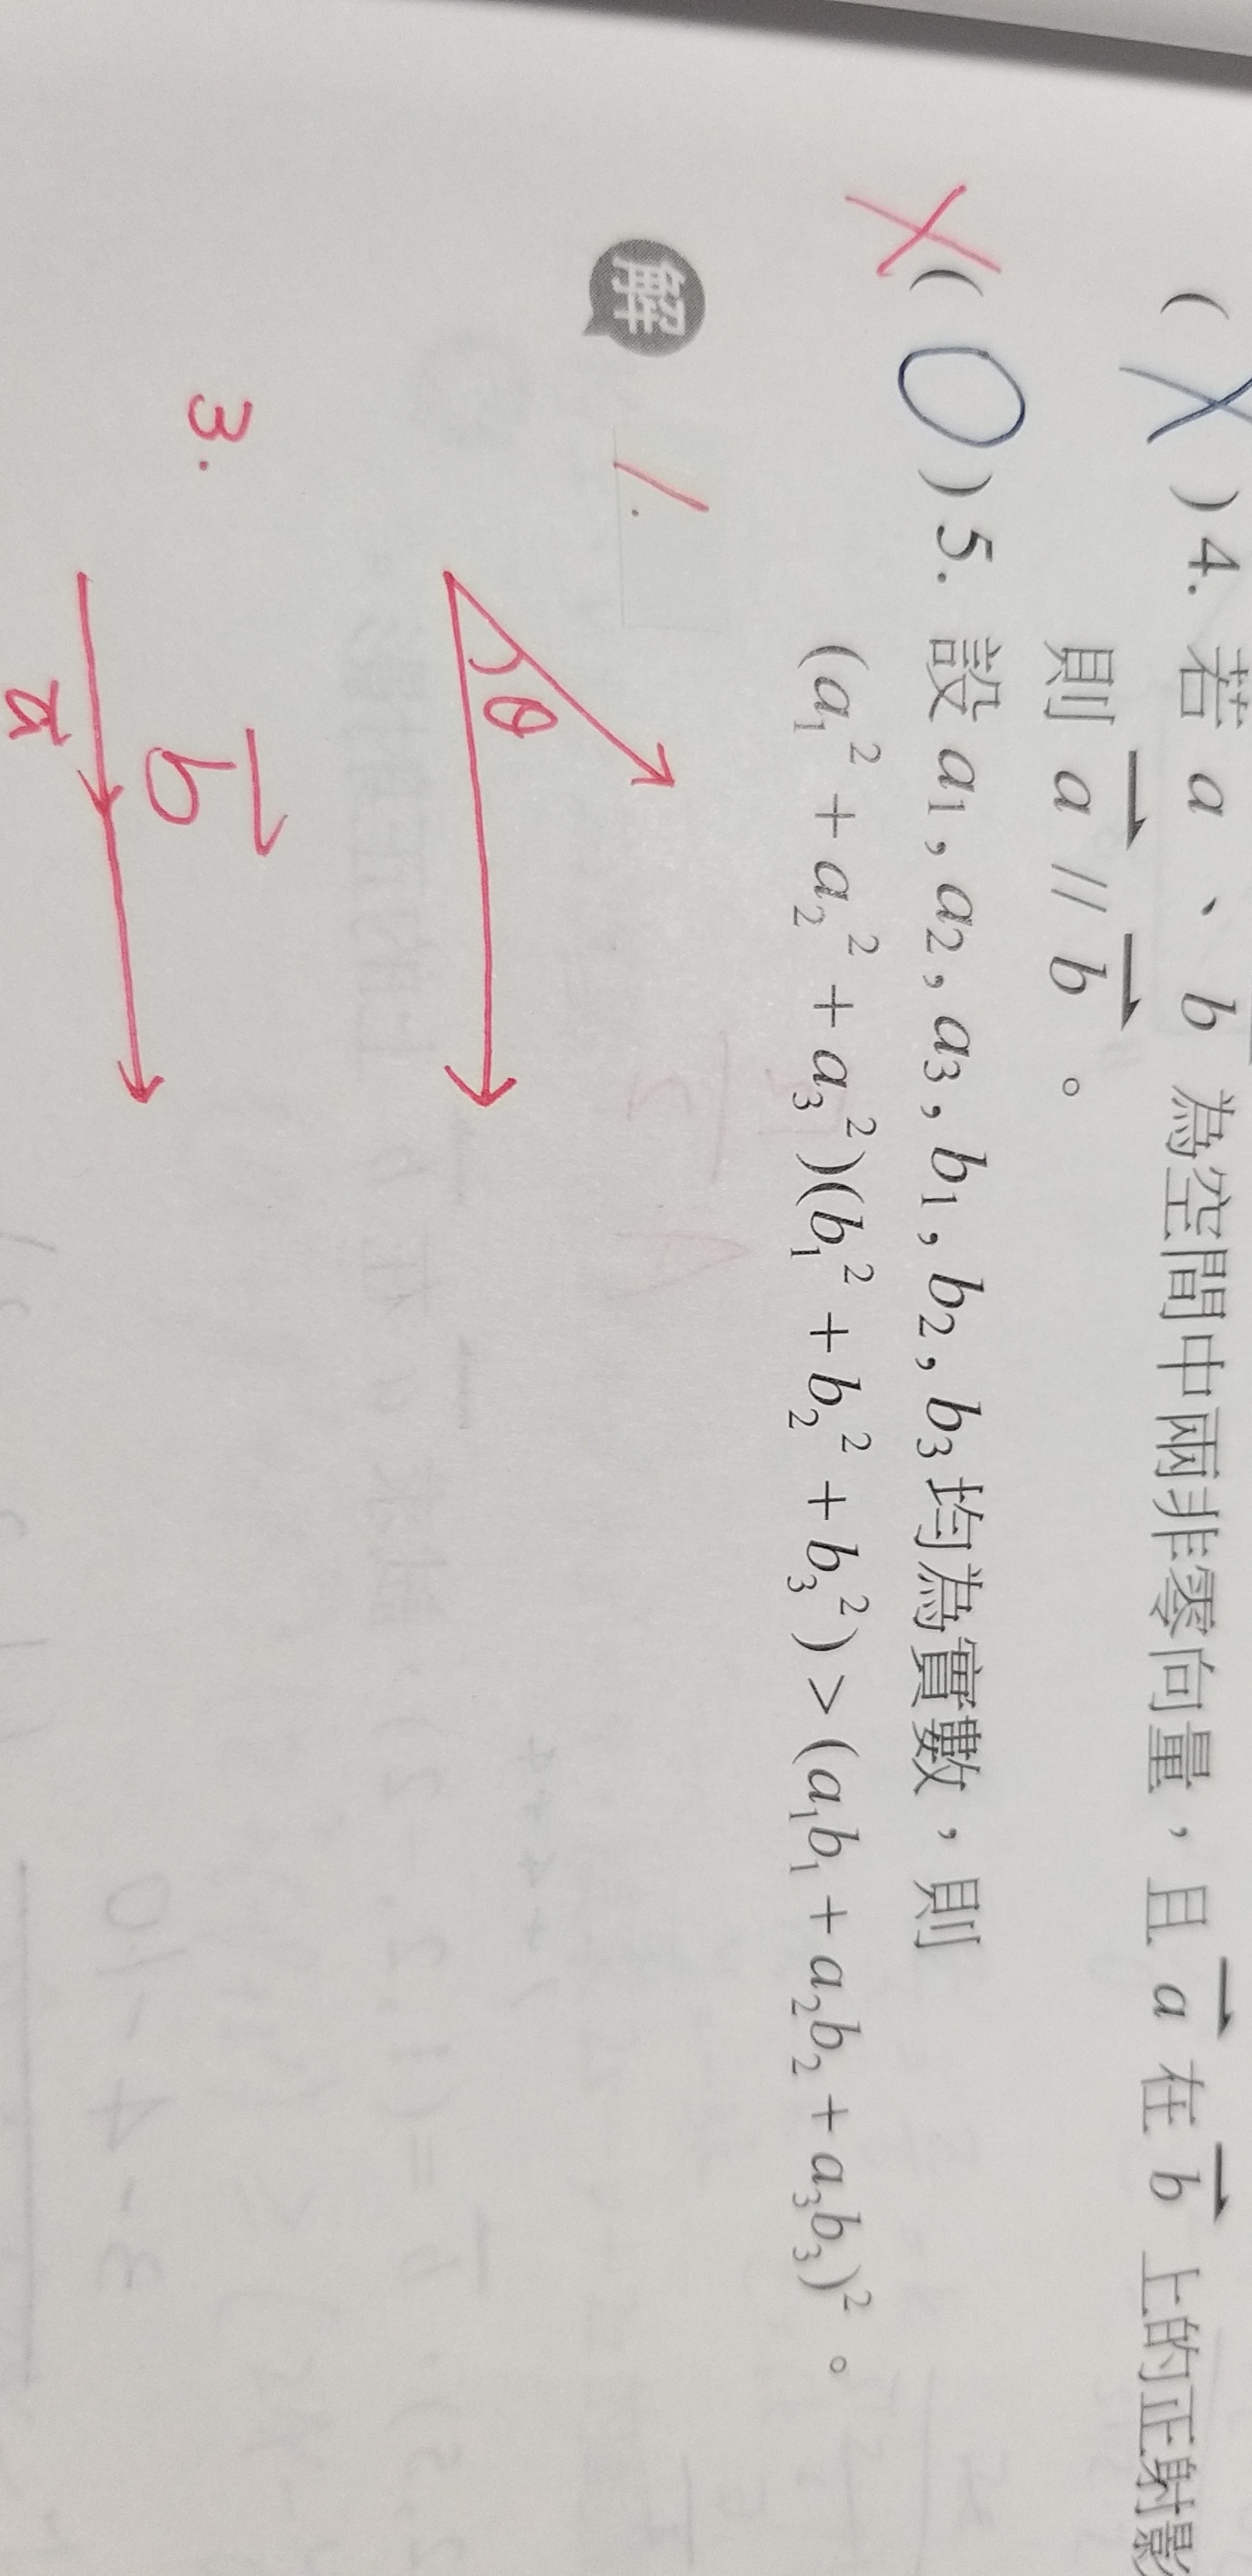 ( X ) 4. 若 a 、 b 為空間中兩非零向量，且 a 在 b 上的正射影
則 a // b 。
X ( O ) 5. 設 a₁, a₂, a₃, b₁, b₂, b₃ 均為實數，則
(a₁² + a₂² + a₃²)(b₁² + b₂² + b₃²) > (a₁b₁ + a₂b₂ + a₃b₃)² 。
解 1.
θ
3.
b
a